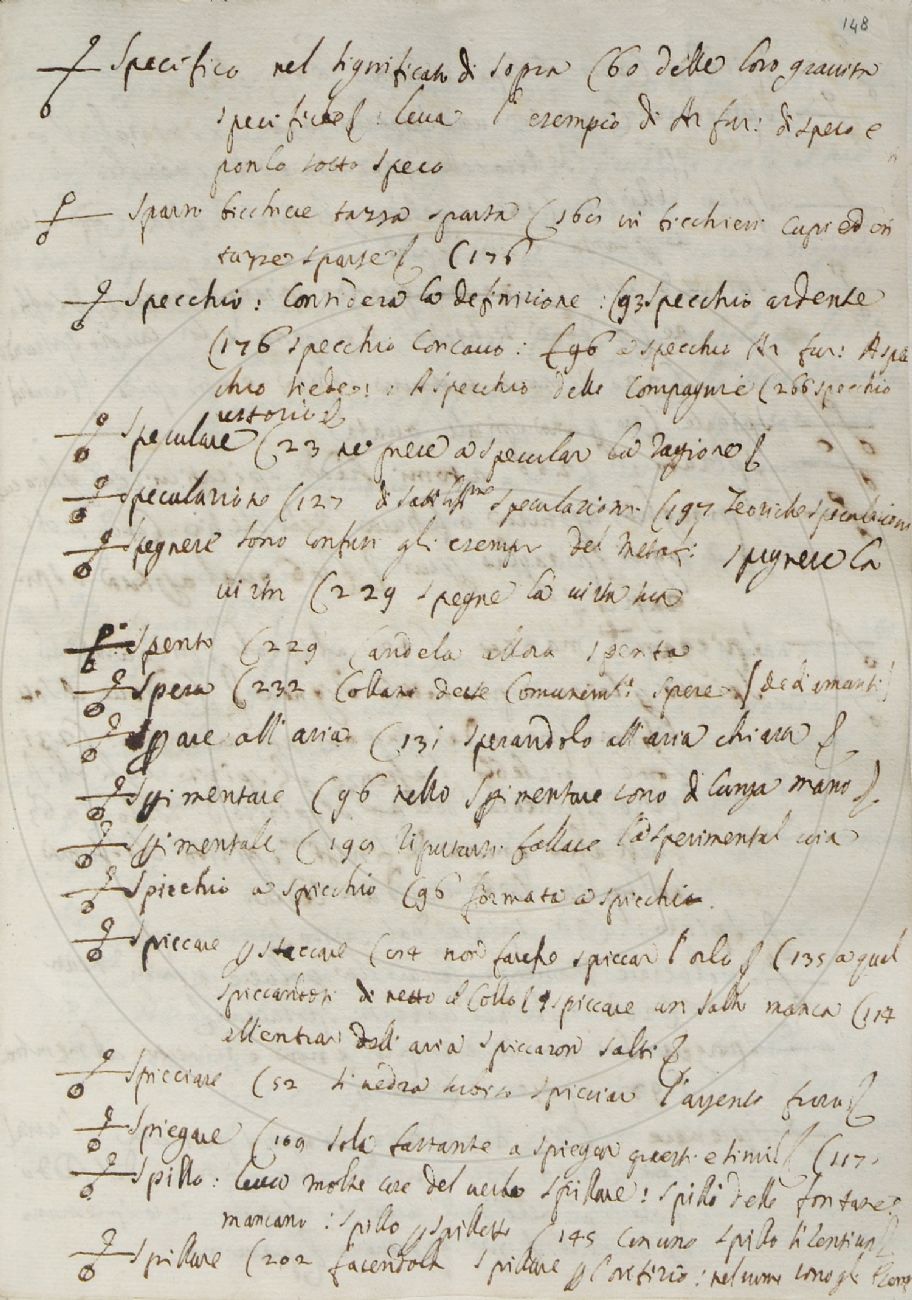 148
Specifico nel significato di sopra (60 delle loro gravità
specifiche : Leva l'esempio di Ar fur: di speco e
ponlo sotto speco
Sparso bicchiere tazza sparsa (160 in bicchieri cupi ed in
tazze sparse (176
Specchio: Considera la definizione : (93 specchio ardente
(176 specchio concavo : (96 a specchio Ar fur: A spec
chio : A specchio delle Compagnie (266 specchio
ustorio
Speculare (23 ne prese a specular la ragione
Speculazione (127 speculazioni (197 Teoriche speculazioni
Spegnere sono confusi gli esempi del Metaf: spegnere la
virtù (229 spegne la virtù sua
Spento (229 Candela allora spenta
Spera (232 Collane dette Comunem: spere (de diamanti)
Sperare all'aria (131 sperandolo all'aria chiara
Sperimentare (96 nello sperimentare sono di lunga mano
Sperimentale (190 riputarsi fallace la sperimental via
Spicchio a spicchio (96 formata a spicchi
Spiccare p staccare ( non farehe spiccar l'orlo (135 a quel
spiccandosi di netto il Collo spiccare un salto manca (114
all'entrar dell'aria spiccaron salti
Spicciare (52 si vedra spicciar l'argento
Spiegare (109 sola bastante a spiegar questi e simili (117
Spillo: Leva molte cose del verbo spillare: spilli delle fontane
mancano : spillo p spilletto (145 con uno spillo
Spillare (202 facendola spillare p l'orifizio : nel nome sono gli